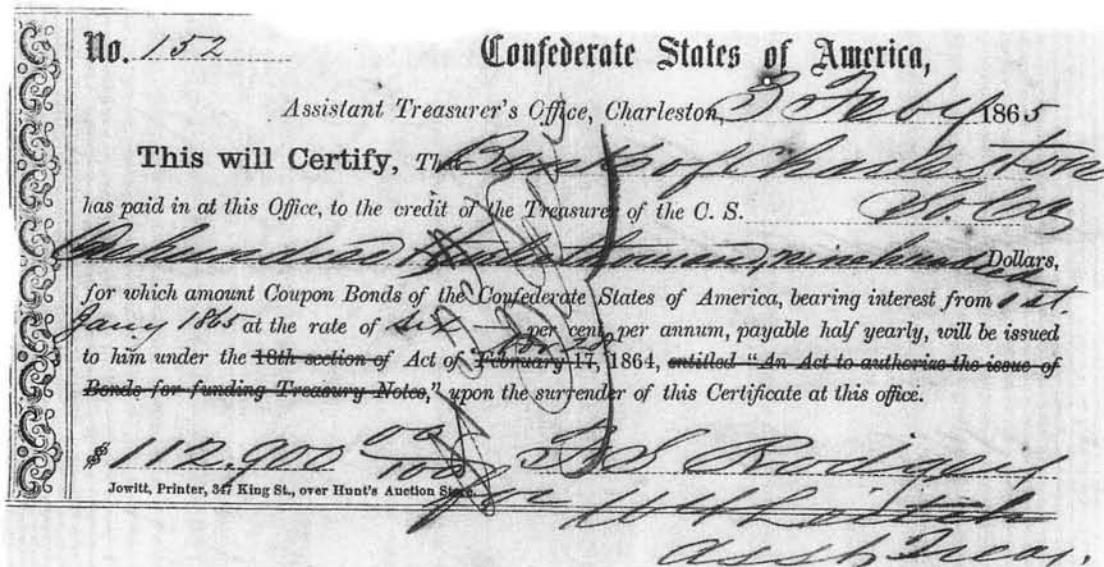 No. 152 Confederate States of America,
Assistant Treasurer's Office, Charleston, 3 Feby 1865
This will Certify, That Bank of Charleston
has paid in at this Office, to the credit of the Treasurer of the C. S. So. Ca
One hundred & twelve thousand, nine hundred Dollars,
for which amount Coupon Bonds of the Confederate States of America, bearing interest from 1st.
Jany 1865 at the rate of six per cent, per annum, payable half yearly, will be issued
to him under the 18th section of Act of February 17, 1864, entitled "An Act to authorize the issue of
Bonds for funding Treasury Notes," upon the surrender of this Certificate at this office.
$ 112,900 00/100 S Rodgers
Jowitt, Printer, 347 King St., over Hunt's Auction Store. for
Asst Treas.